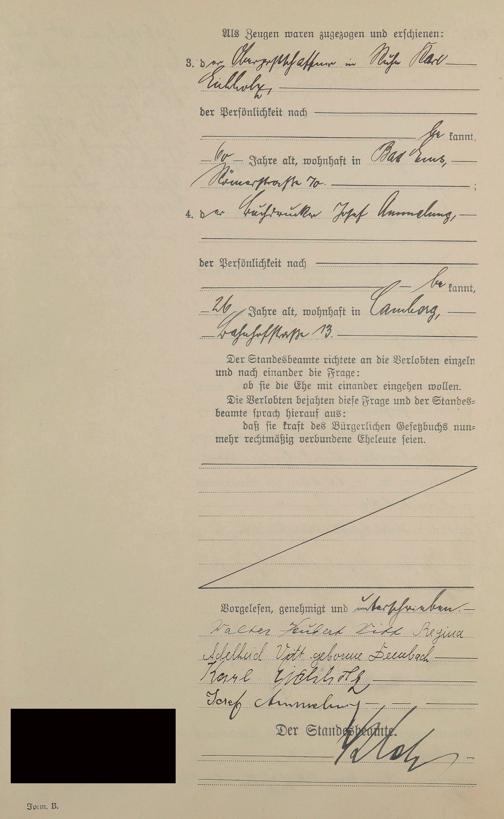 Als Zeugen waren zugezogen und erschienen:
3. der Oberpostschaffner in Ruhe Karl
Eichholz,
der Persönlichkeit nach
bekannt,
60 Jahre alt, wohnhaft in Bad Ems,
Römerstraße 70.
4. der Buchdrucker Josef Ammelung,
der Persönlichkeit nach
bekannt,
26 Jahre alt, wohnhaft in Camberg,
Bahnhofstraße 13.
Der Standesbeamte richtete an die Verlobten einzeln
und nach einander die Frage:
ob sie die Ehe mit einander eingehen wollen.
Die Verlobten bejahten diese Frage und der Standes=
beamte sprach hierauf aus:
daß sie kraft des Bürgerlichen Gesetzbuchs nun=
mehr rechtmäßig verbundene Eheleute seien.
Vorgelesen, genehmigt und unterschrieben.
Walter Hubert Regina
geborene
Karl Eichholz
Josef Ammelung
Der Standesbeamte.
Form. B.